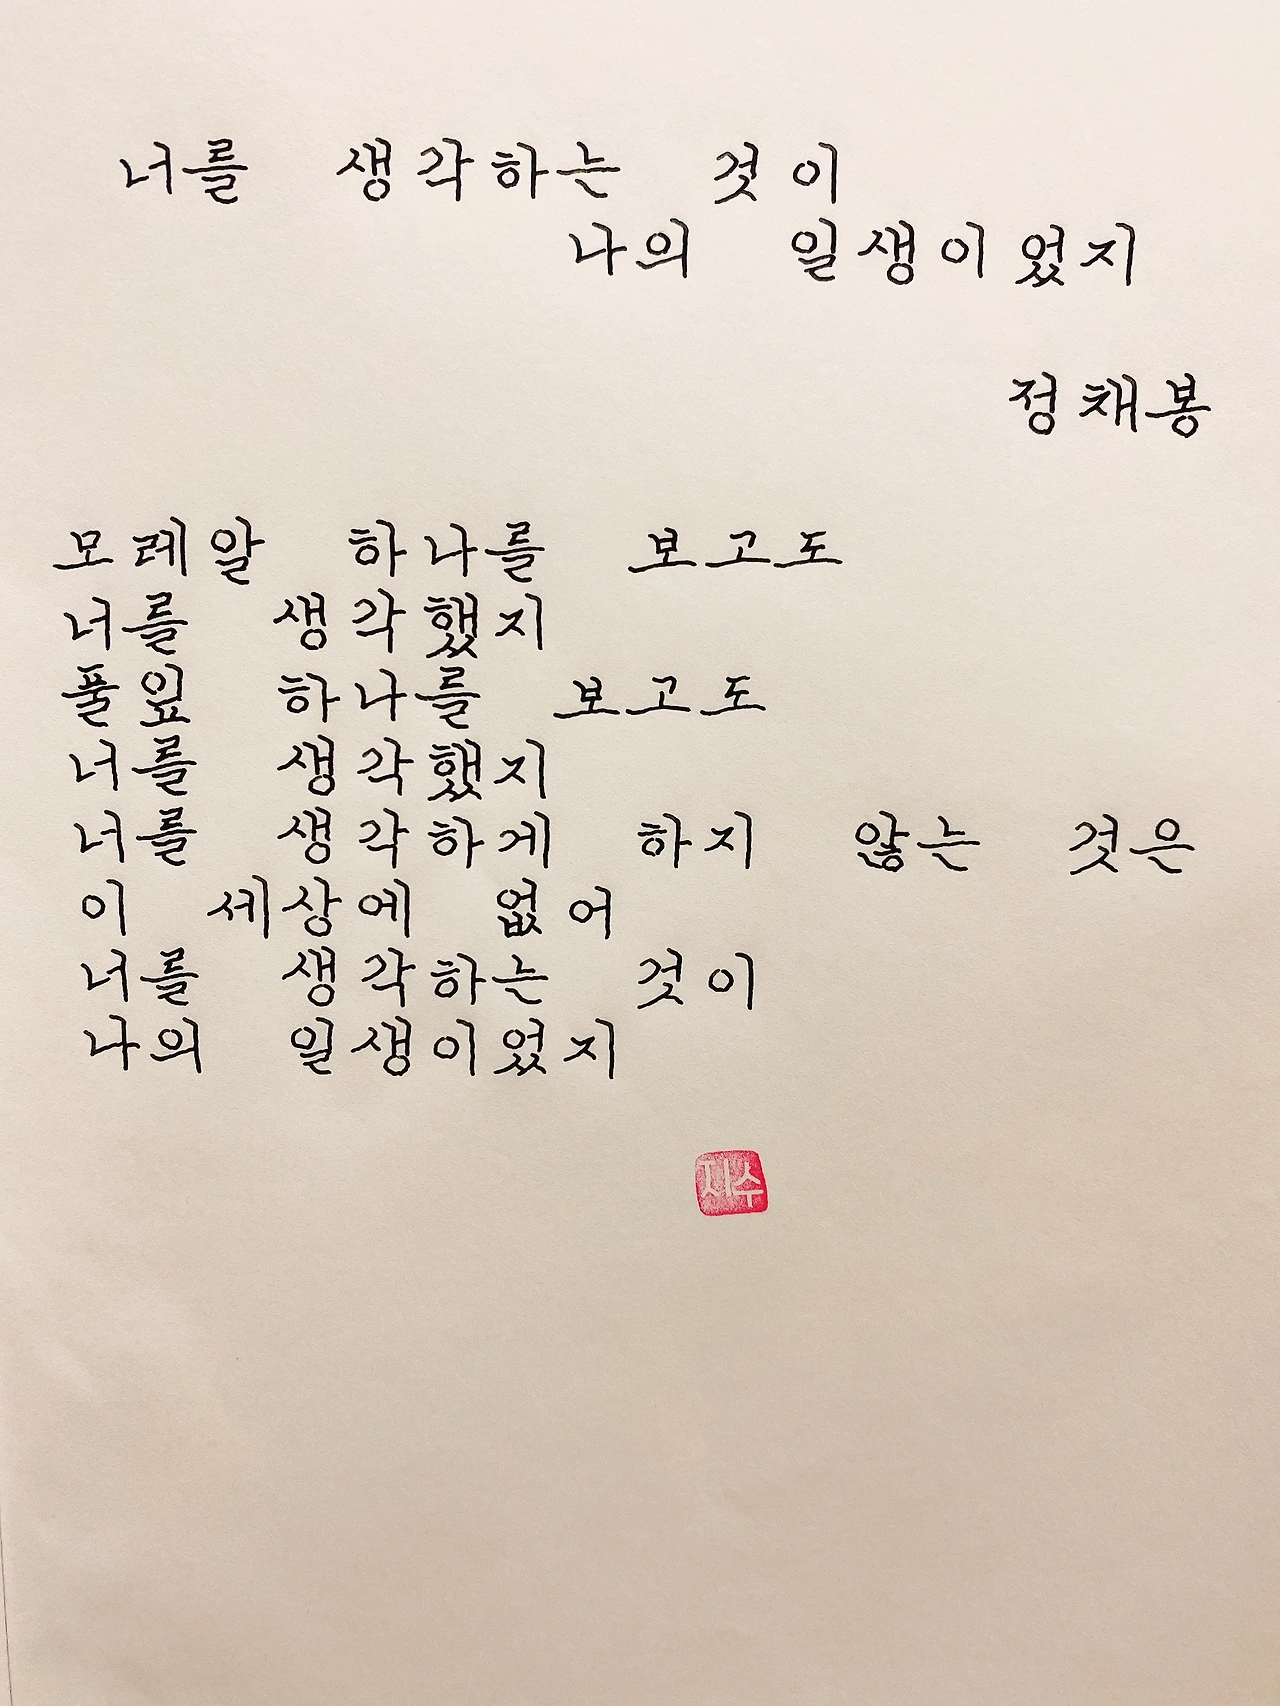 너를 생각하는 것이
나의 일생이었지
정채봉
모레알 하나를 보고도
너를 생각했지
풀잎 하나를 보고도
너를 생각했지
너를 생각하게 하지 않는 것은
이 세상에 없어
너를 생각하는 것이
나의 일생이었지
지수